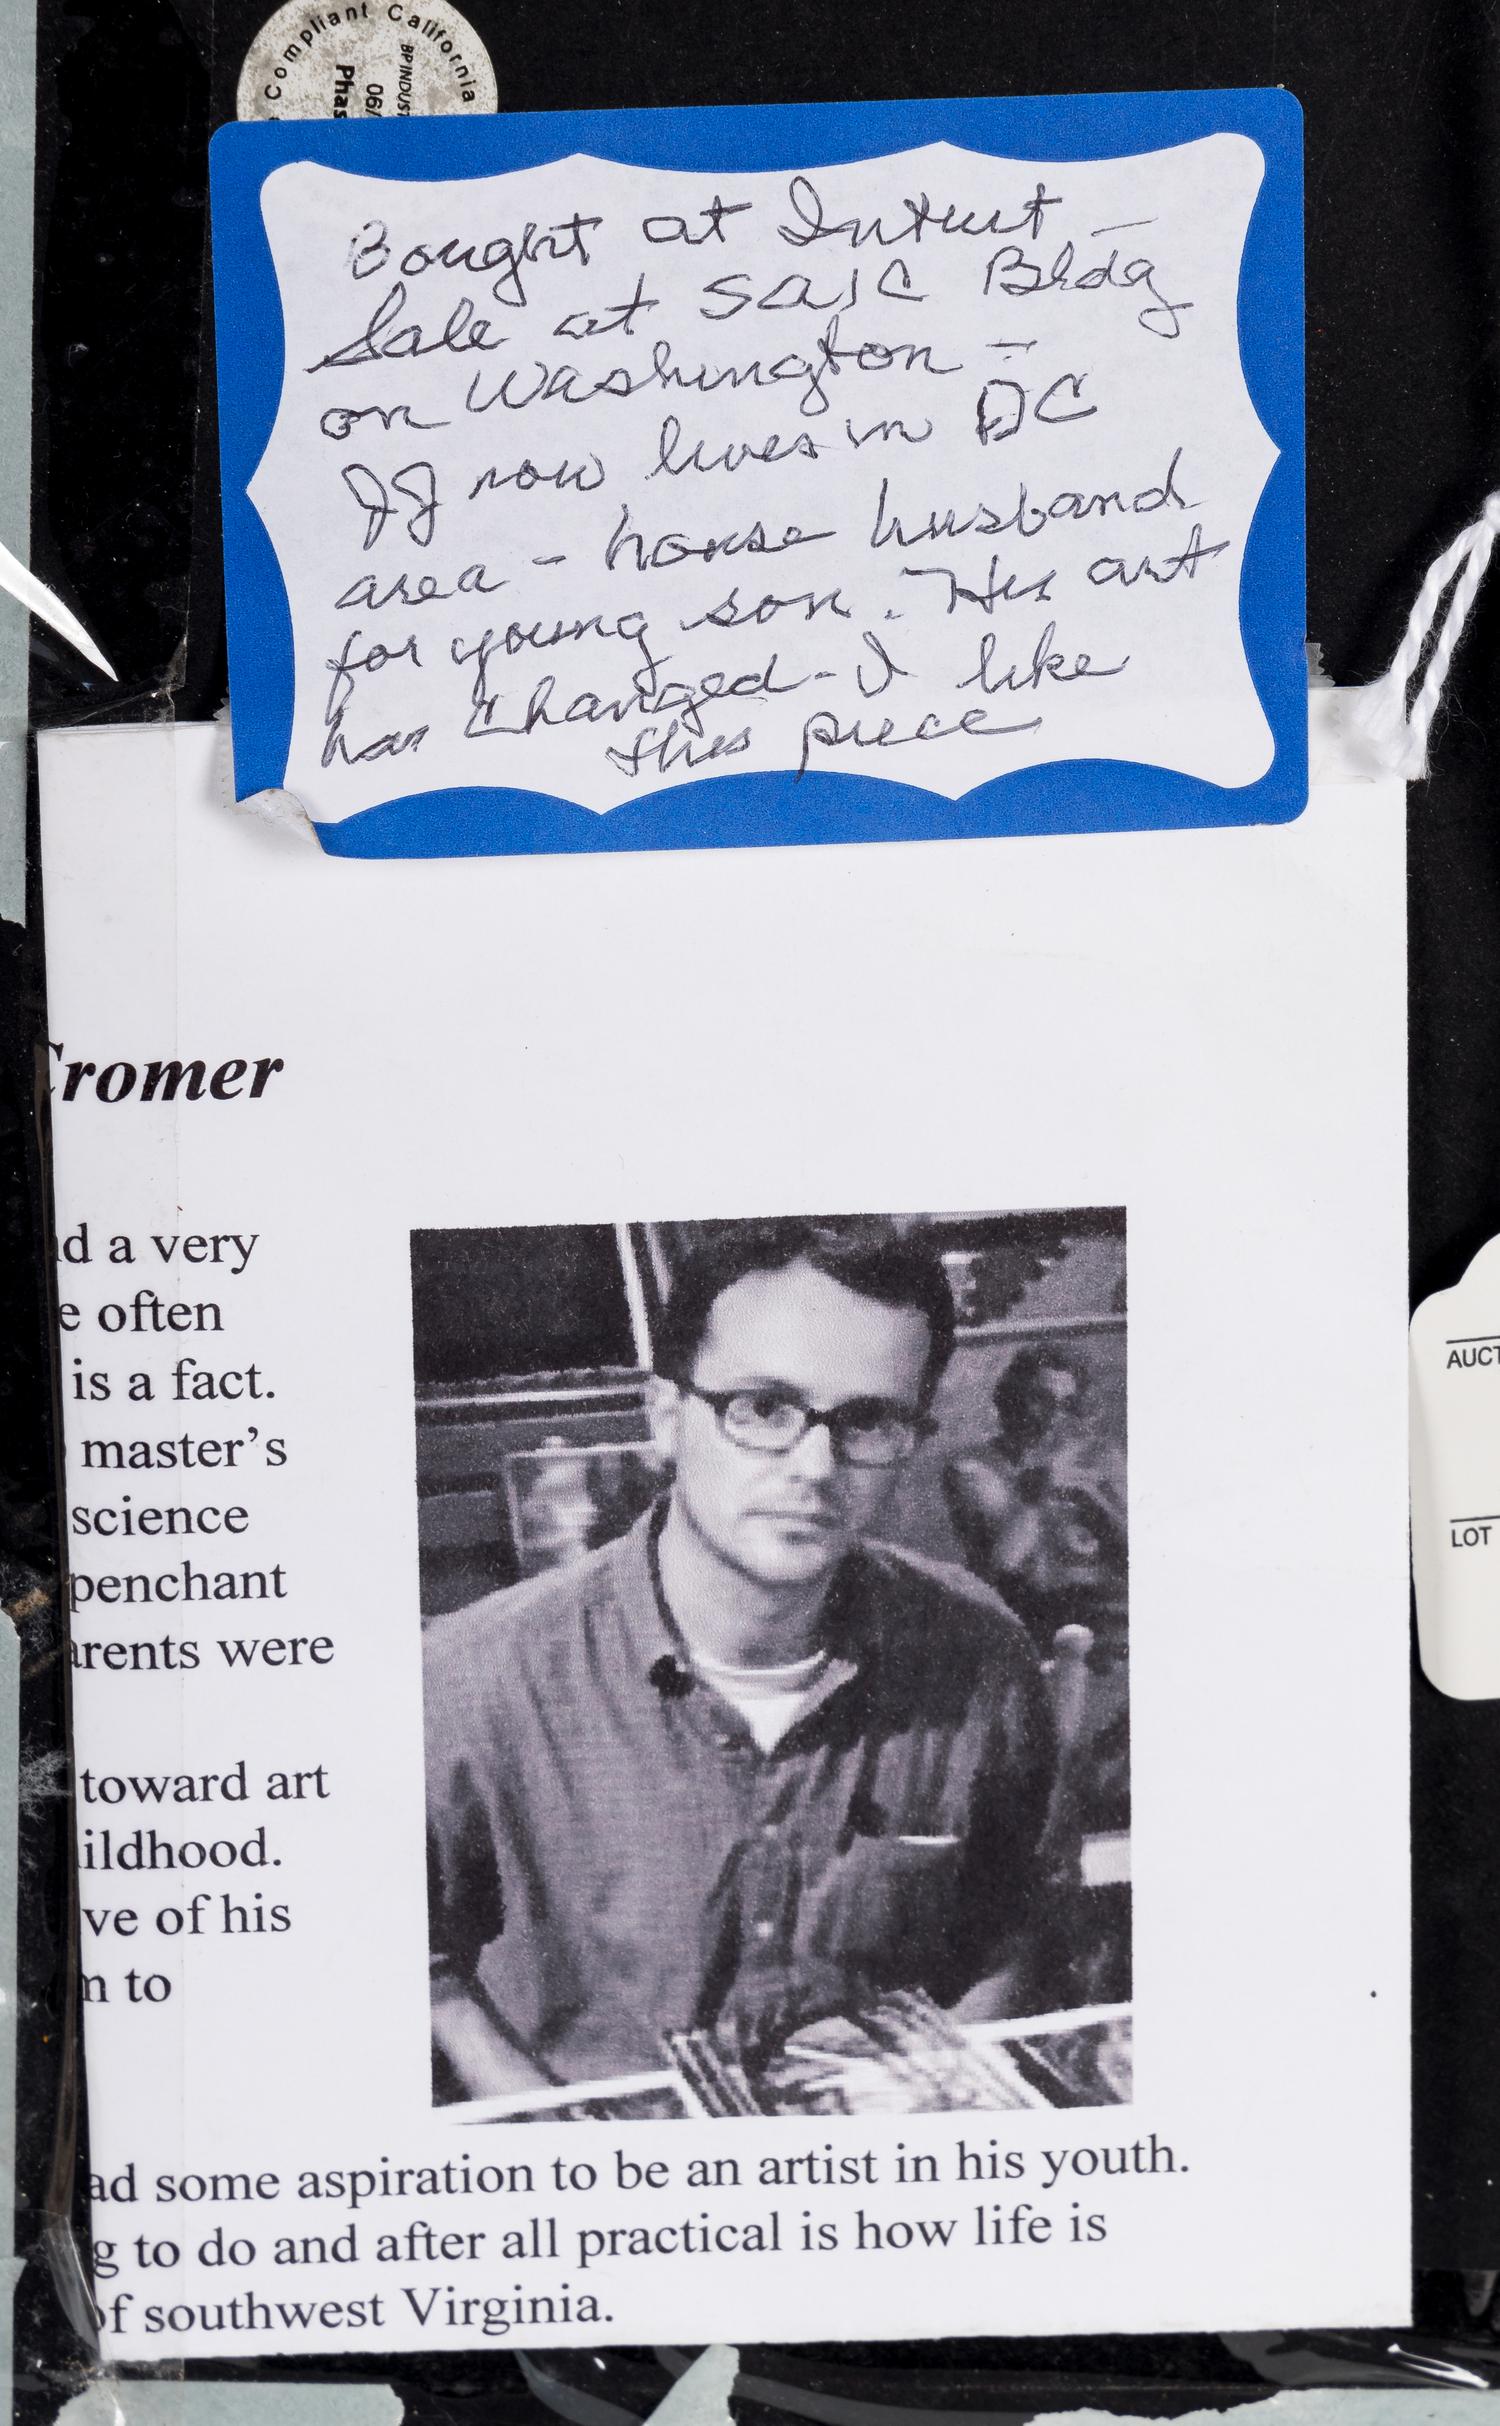 Compliant California
BPINDUST
06/
Phas
Bought at Intuit –
Sale at SAIC Bldg
on Washington –
JJ now lives in DC
area – house husband
for young son. His art
has changed – I like
this piece
Cromer
nd a very
e often
is a fact.
master's
science
penchant
arents were
toward art
ildhood.
ve of his
n to
ad some aspiration to be an artist in his youth.
g to do and after all practical is how life is
of southwest Virginia.
AUCT
LOT